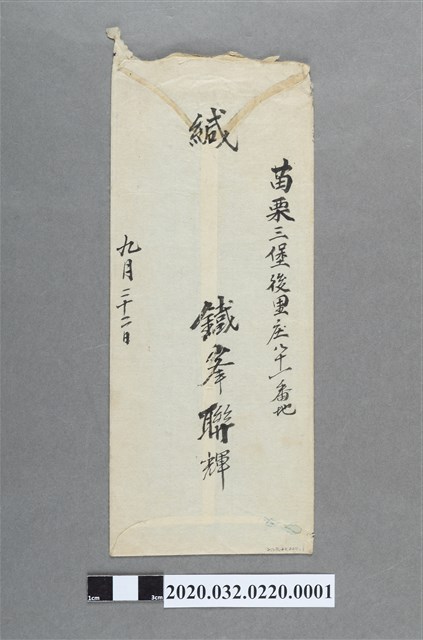 苗栗三堡後里庄八十一番地
緘
鐵峯聯輝
九月二十二日
1cm
3cm
2020.032.0220.0001